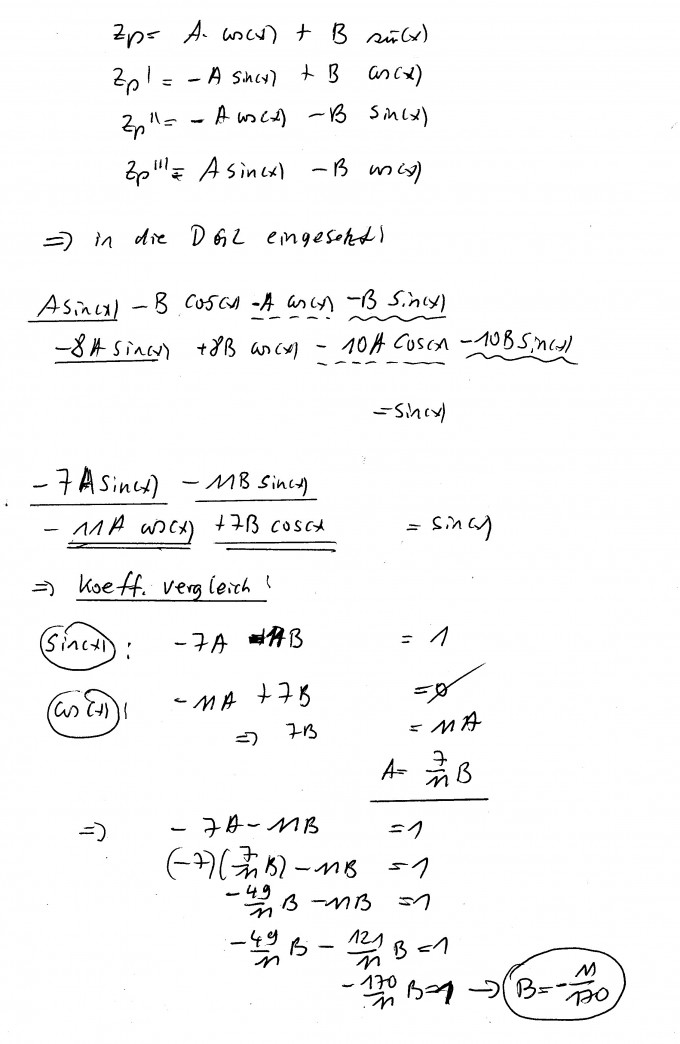 Zp = A · cos(x) + B sin(x)
Zp' = - A sin(x) + B cos(x)
Zp'' = - A cos(x) - B sin(x)
Zp''' = A sin(x) - B cos(x)
=> in die DGL eingesetzt!
A sin(x) - B cos(x) - A cos(x) - B sin(x)
- 8A sin(x) + 8B cos(x) - 10A cos(x) - 10B sin(x)
= sin(x)
- 7A sin(x) - 11B sin(x)
- 11A cos(x) + 7B cos(x) = sin(x)
=> Koeff. vergleich!
sin(x): - 7A - 11B = 1
cos(x): - 11A + 7B = 0
=> 7B = 11A
A = 7/11 B
=> - 7A - 11B = 1
(-7)(7/11 B) - 11B = 1
- 49/11 B - 11B = 1
- 49/11 B - 121/11 B = 1
- 170/11 B = 1 → B = - 11/170